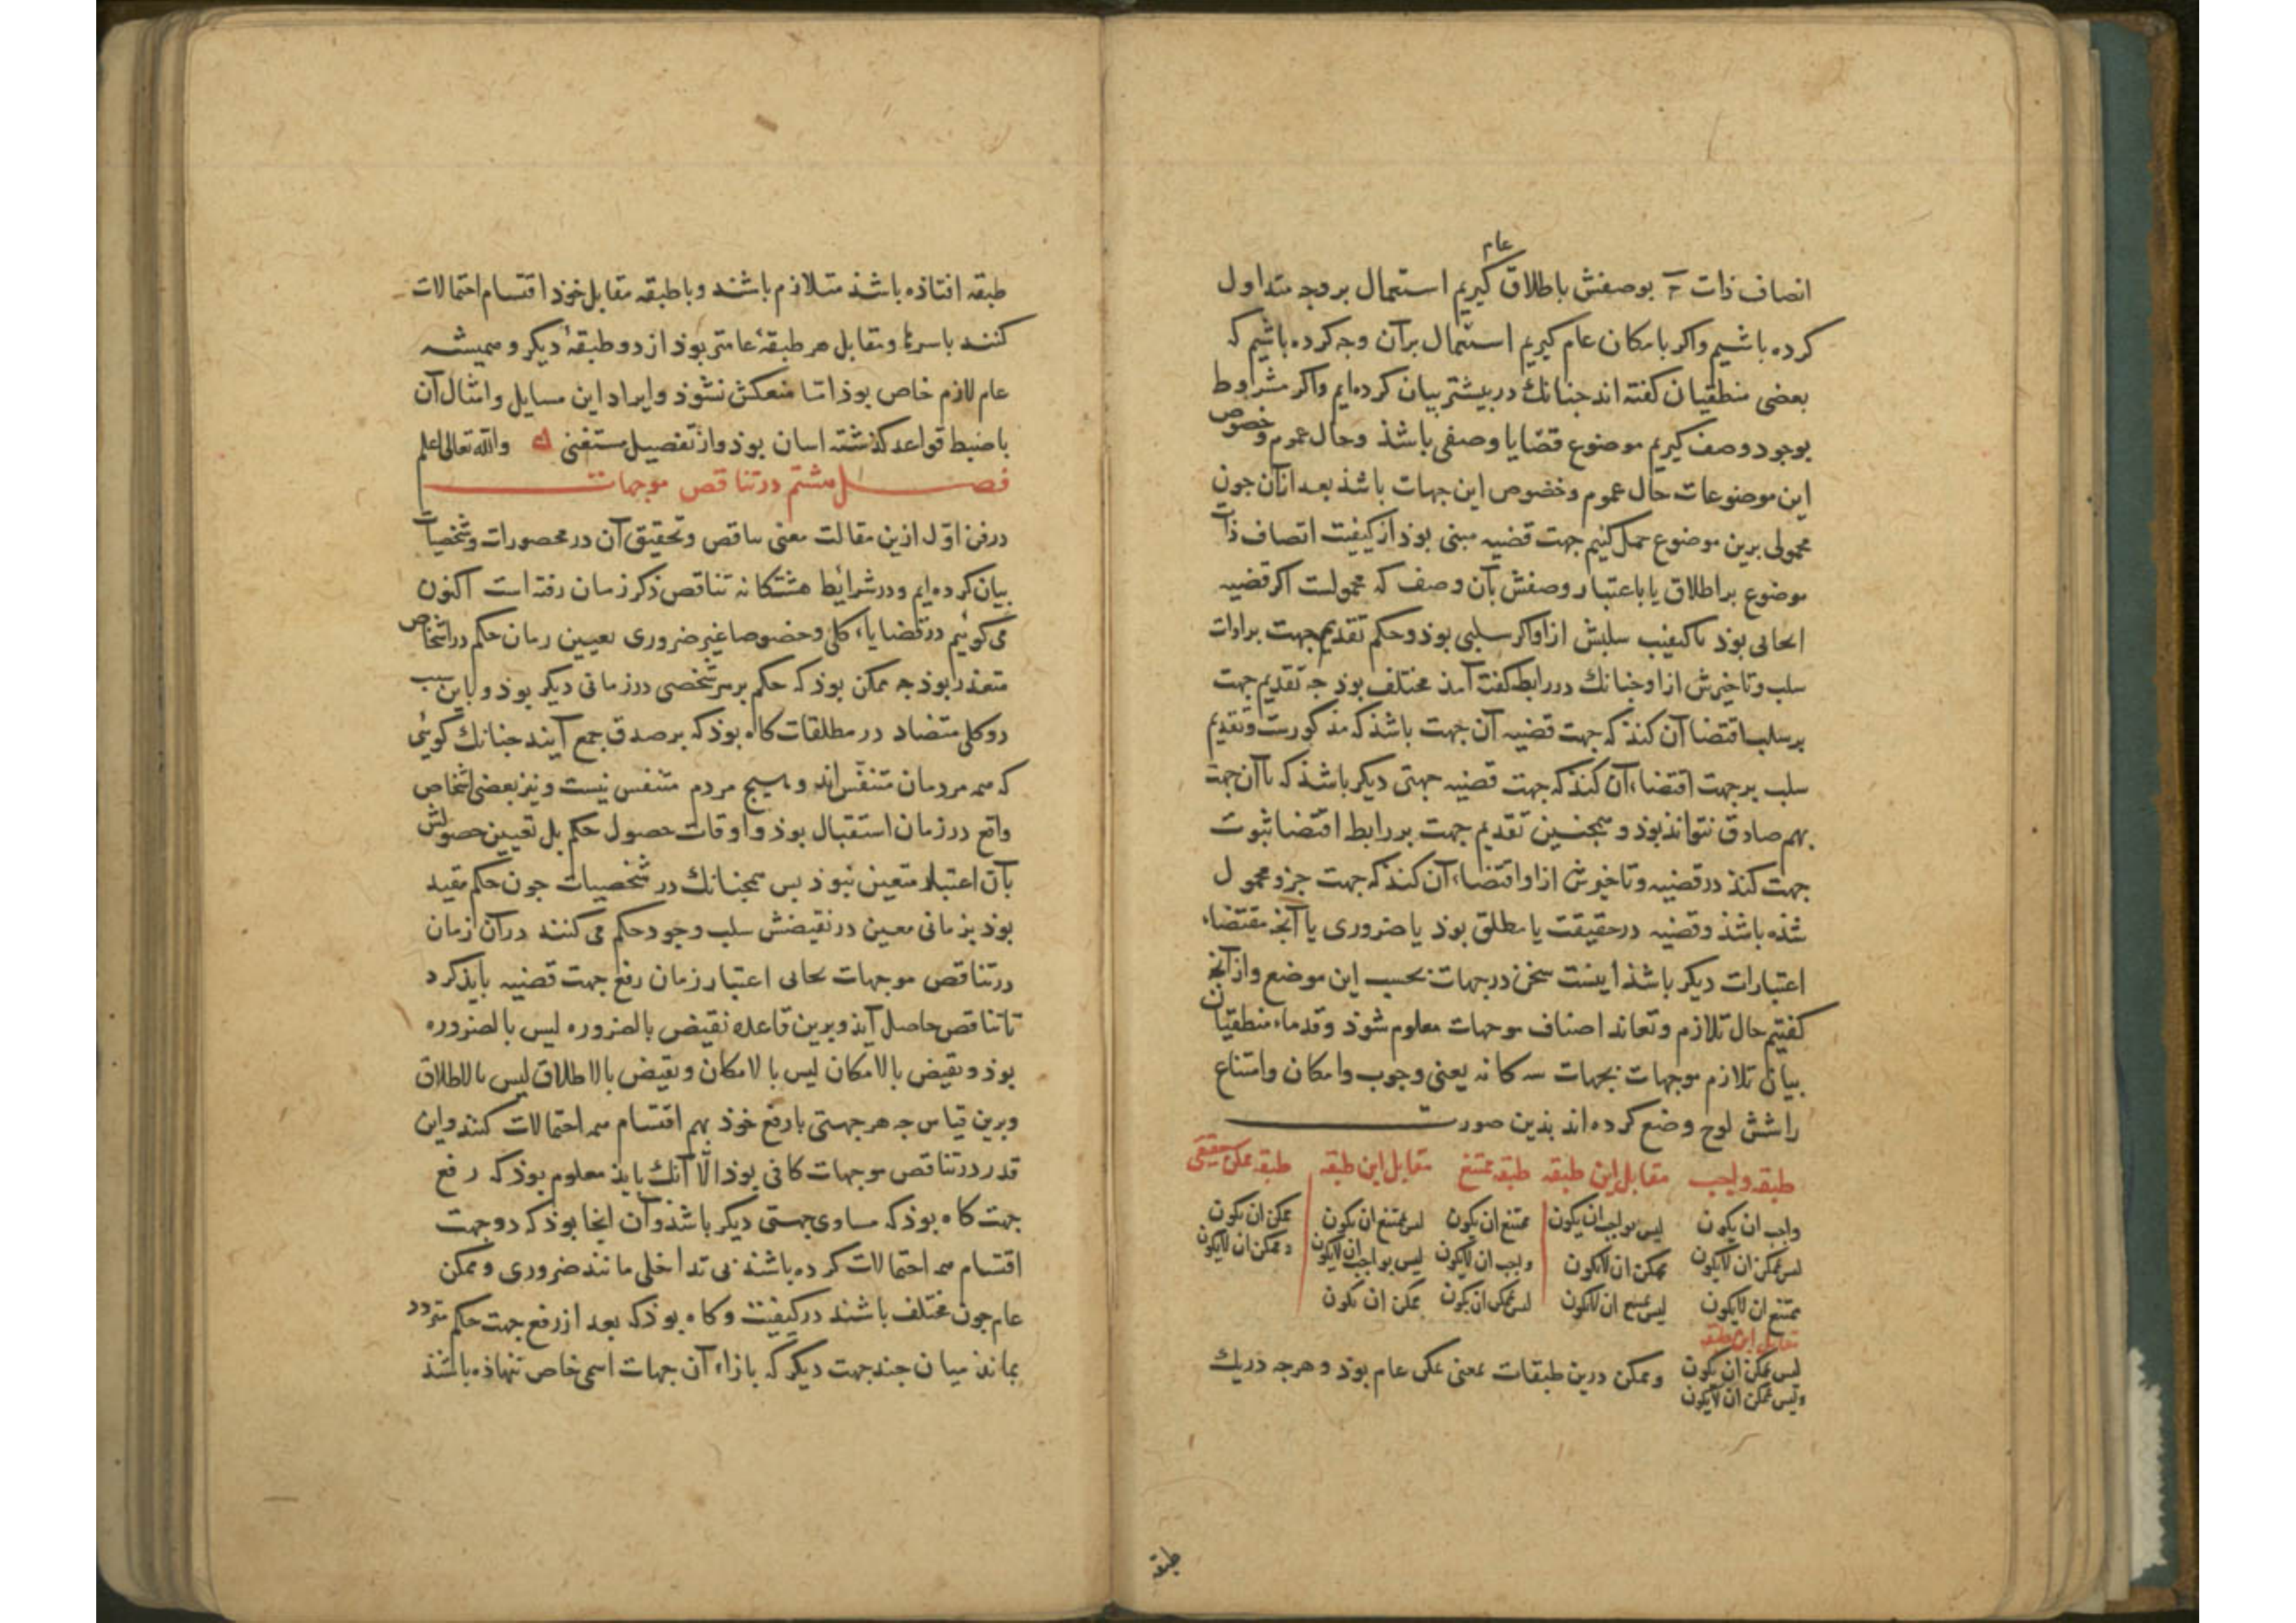 عام
اتصاف ذات ج بوصفش باطلاق گیریم استعمال بر وجه متداول
کرده باشیم واکر بامکان عام کیریم استعمال برآن وجه کرده باشیم که
بعضی منطقیان کفته اند جنانك دربیشتر بیان کرده ایم واکر مشروط
بوجود وصف کیریم موضوع قضایا وصفی باشذ وحال عموم وخصوص
این موضوعات حال عموم وخصوص این جهات باشذ بعد ازان جون
محمولی برین موضوع حمل کنیم جهت قضیه مبنی بوذ از کیفیت اتصاف ذات
موضوع براطلاق یا باعتبار وصفش بآن وصف که محمولست اکر قضیه
ایجابی بوذ یا کیفیت سلبش ازاو اکر سلبی بوذ وحکم تقدیم جهت برادات
سلب وتاخیرش ازاو جنانك دررابط کفته آمذ مختلف بوذ جه تقدیم جهت
برسلب اقتضا آن کنذ که جهت قضیه آن جهت باشذ که مذکورست وتقدیم
سلب برجهت اقتضاء آن کنذ که جهت قضیه جهتی دیکر باشذ که باآن جهت
بهم صادق نتواند بوذ وهمجنین تقدیم جهت بررابط اقتضا ثبوت
جهت کنذ درقضیه وتاخیرش ازاو اقتضاء آن کنذ که جهت جزو محمول
شذه باشذ وقضیه درحقیقت یا مطلق بوذ یا ضروری یا آنج مقتضاء
اعتبارات دیکر باشذ اینست سخن درجهات بحسب این موضع وازآنج
کفتیم حال تلازم وتعاند اصناف موجهات معلوم شوذ وقدماء منطقیان
بیان تلازم موجهات بجهات سه کانه یعنی وجوب وامکان وامتناع
راشش لوح وضع کرده اند بذین صورت
طبقه واجب مقابل این طبقه طبقه ممتنع مقابل این طبقه طبقه ممکن حقیقی
واجب ان یکون لیس بواجب ان یکون ممتنع ان یکون لیس ممتنع ان یکون ممکن ان یکون
لیس ممکن ان لایکون ممکن ان لایکون واجب ان لایکون لیس بواجب ان لایکون وممکن ان لایکون
ممتنع ان لایکون لیس ممتنع ان لایکون لیس ممکن ان یکون ممکن ان یکون
مقابل این طبقه
لیس ممکن ان یکون وممکن درین طبقات بمعنی ممکن عام بوذ وهرجه دریك
ولیس ممکن ان لایکون
طبقه
طبقه افتاذه باشذ متلازم باشند وباطبقه مقابل خوذ اقتسام احتمالات
کنند باسرها ومقابل هر طبقهٔ عامتر بوذ از دوطبقهٔ دیکر وهمیشه
عام لازم خاص بوذ امّا منعکس نشوذ وایراد این مسایل وامثال آن
باضبط قواعد کذشته اسان بوذ واز تفصیل مستغنی والله تعالی اعلم
فصل هشتم درتناقض موجهات
درفن اوّل ازین مقالت معنی تناقض وتحقیق آن درمحصورات وشخصیات
بیان کرده ایم ودرشرایط هشتکانه تناقض ذکر زمان رفته است اکنون
می کوئیم درقضایاء کلی وخصوصا غیرضروری تعیین زمان حکم دراشخاص
متعذر بوذ جه ممکن بوذ که حکم برهر شخصی درزمانی دیکر بوذ وباین سبب
دوکلی متضاد در مطلقات کاه بوذ که برصدق جمع آیند جنانك کوئی
که همه مردمان متنفّس اند وهیچ مردم متنفس نیست ونیز بعضی اشخاص
واقع درزمان استقبال بوذ واوقات حصول حکم بل تعیین حصولش
بآن اعتبار متعین نبوذ بس همجنانك در شخصیات جون حکم مقید
بوذ بزمانی معین درنقیضش سلب وجود حکم می کنند درآن زمان
درتناقض موجهات بجای اعتبار زمان رفع جهت قضیه بایذ کرد
تاتناقض حاصل آیذ وبرین قاعده نقیض بالضروره لیس بالضروره
بوذ ونقیض بالامکان لیس بالامکان ونقیض بالاطلاق لیس بالاطلاق
وبرین قیاس جه هرجهتی بارفع خوذ بهم اقتسام همه احتمالات کنند واین
قدر درتناقض موجهات کافی بوذ الّا آنك بایذ معلوم بوذ که رفع
جهت کاه بوذ که مساوی جهتی دیکر باشذ وآن انجا بوذ که دوجهت
اقتسام همه احتمالات کرده باشند بی تداخلی مانند ضروری وممکن
عام جون مختلف باشند درکیفیت وکاه بوذ که بعد ازرفع جهت حکم متردد
بماند میان جند جهت دیکر که بازاء آن جهات اسمی خاص ننهاذه باشند